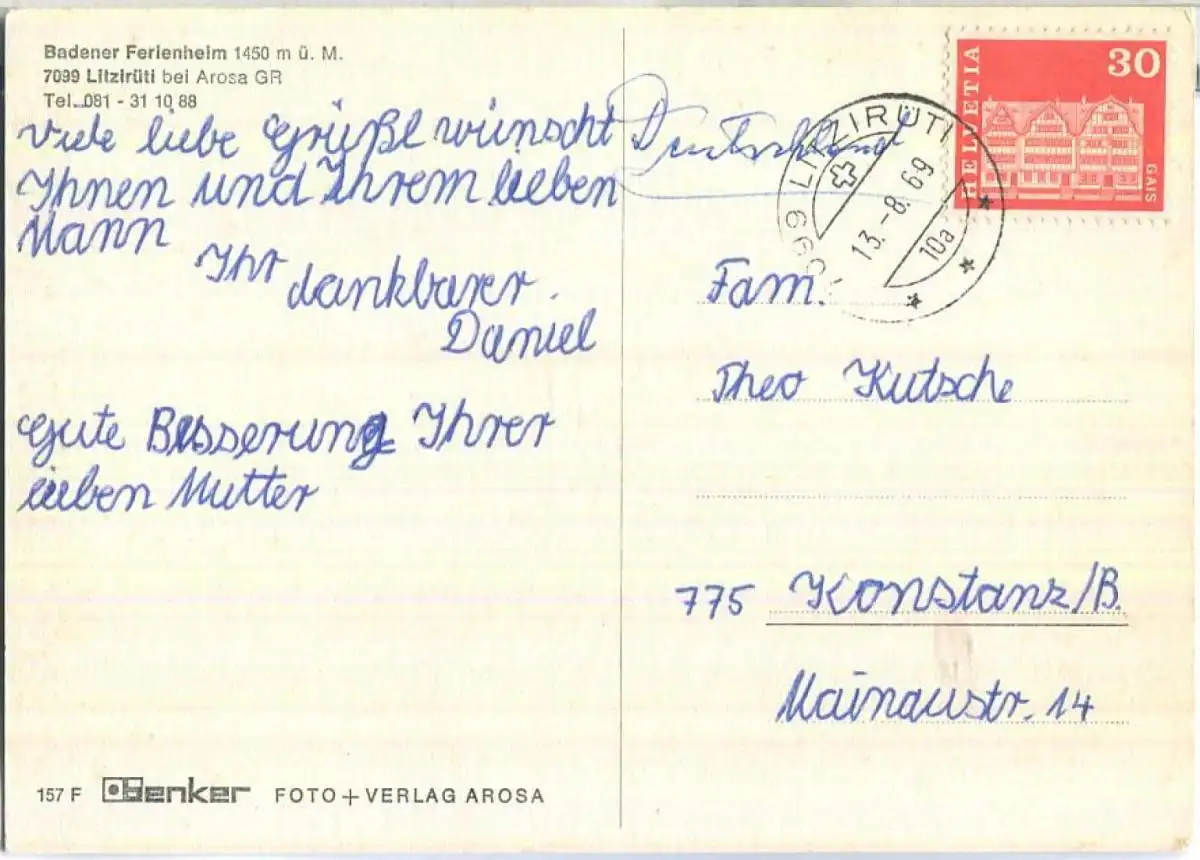 Badener Ferienheim 1450 m ü. M.
7099 Litzirüti bei Arosa GR
Tel. 081 - 31 10 88
Viele liebe Grüße wünscht
Ihnen und Ihrem lieben
Mann
Ihr dankbarer
Daniel
Gute Besserung Ihrer
lieben Mutter
157 F Benker FOTO + VERLAG AROSA
Deutschland
HELVETIA
30
GAIS
7099 LITZIRÜTI
13.-8.69
10a
Fam.
Theo Kutsche
775 Konstanz/B.
Mainaustr. 14